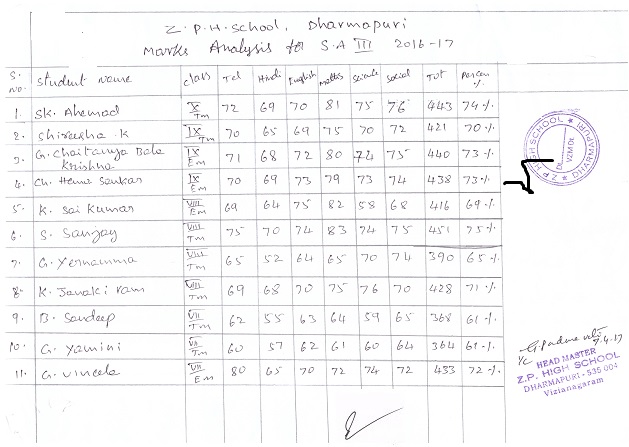 Z.P.H. School, Dharmapuri
Marks Analysis for S.A III 2016-17
S. no. Student name class Tel Hindi English Maths Science Social TOT Percen %
1. SK. Ahemad X Tm 72 69 70 81 75 76 443 74 %
2. Shireesha .K IX Tm 70 65 69 75 70 72 421 70 %
3. G. Chaitanya Bala Krishna IX Em 71 68 72 80 74 75 440 73 %
4. Ch. Hema Sankar IX Em 70 69 73 79 73 74 438 73 %
5. K. Sai Kumar VIII Em 69 64 75 82 58 68 416 69 %
6. S. Sanjay VIII Tm 75 70 74 83 74 75 451 75 %
7. G. Yernamma VIII Tm 65 52 64 65 70 74 390 65 %
8. K. Janaki ram VIII Tm 69 68 70 75 76 70 428 71 %
9. B. Sandeep VII Tm 62 55 63 64 59 65 368 61 %
10. G. Yamini VII Tm 60 57 62 61 60 64 364 61 %
11. G. Vineela VII Em 80 65 70 72 74 72 433 72 %
Z.P. HIGH SCHOOL ★ DHARMAPURI ★
VZM Dt
7.4.17
HEAD MASTER
Z.P. HIGH SCHOOL
DHARMAPURI - 535 004
Vizianagaram